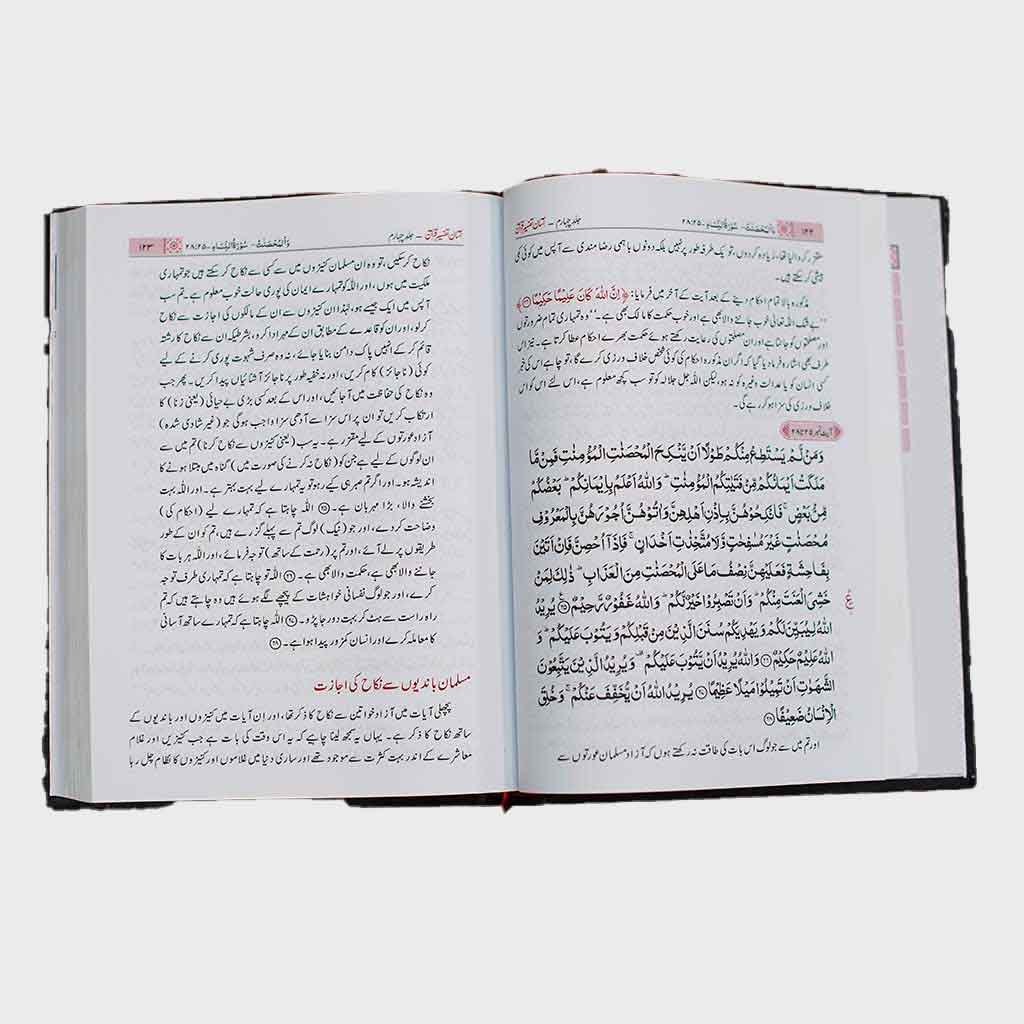 ۱۲۲ وَالْمُحْصَنٰتُ - سُوْرَةُ النِّسَاءِ - ۲۸:۲۵ جلد چہارم - آسان تفسیر قرآن
مقرر کر دیا تھا، زیادہ کر دوں، تو یک طرفہ طور پر نہیں بلکہ دونوں باہمی رضا مندی سے آپس میں کوئی کمی
بیشی کر سکتے ہیں۔
مذکورہ بالا تمام احکام دینے کے بعد آیت کے آخر میں فرمایا: ﴿اِنَّ اللّٰهَ كَانَ عَلِيْمًا حَكِيْمًا﴾
"بے شک اللہ تعالیٰ خوب جاننے والا بھی ہے اور خوب حکمت کا مالک بھی ہے۔" وہ تمہاری تمام ضرورتوں
اور مصلحتوں کو جانتا ہے اور ان مصلحتوں کی رعایت رکھتے ہوئے حکمت بھرے احکام عطا کرتا ہے۔ نیز اس
طرف بھی اشارہ فرما دیا گیا کہ اگر ان مذکورہ احکام کی کوئی شخص خلاف ورزی کرے گا، تو چاہے اس کی خبر
کسی انسان کو یا عدالت وغیرہ کو نہ ہو، لیکن اللہ جل جلالہ کو تو سب کچھ معلوم ہے، اس لئے اس کو اس
خلاف ورزی کی سزا ہو کر رہے گی۔
آیت نمبر ۲۸:۲۵
وَمَنْ لَّمْ يَسْتَطِعْ مِنْكُمْ طَوْلًا اَنْ يَّنْكِحَ الْمُحْصَنٰتِ الْمُؤْمِنٰتِ فَمِنْ مَّا
مَلَكَتْ اَيْمَانُكُمْ مِّنْ فَتَيٰتِكُمُ الْمُؤْمِنٰتِ ؕ وَاللّٰهُ اَعْلَمُ بِاِيْمَانِكُمْ ؕ بَعْضُكُمْ
مِّنْۢ بَعْضٍ ۚ فَانْكِحُوْهُنَّ بِاِذْنِ اَهْلِهِنَّ وَاٰتُوْهُنَّ اُجُوْرَهُنَّ بِالْمَعْرُوْفِ
مُحْصَنٰتٍ غَيْرَ مُسٰفِحٰتٍ وَّلَا مُتَّخِذٰتِ اَخْدَانٍ ۚ فَاِذَاۤ اُحْصِنَّ فَاِنْ اَتَيْنَ
بِفَاحِشَةٍ فَعَلَيْهِنَّ نِصْفُ مَا عَلَى الْمُحْصَنٰتِ مِنَ الْعَذَابِ ؕ ذٰلِكَ لِمَنْ
خَشِيَ الْعَنَتَ مِنْكُمْ ؕ وَاَنْ تَصْبِرُوْا خَيْرٌ لَّكُمْ ؕ وَاللّٰهُ غَفُوْرٌ رَّحِيْمٌ ۝۲۵ يُرِيْدُ
اللّٰهُ لِيُبَيِّنَ لَكُمْ وَيَهْدِيَكُمْ سُنَنَ الَّذِيْنَ مِنْ قَبْلِكُمْ وَيَتُوْبَ عَلَيْكُمْ ؕ وَ
اللّٰهُ عَلِيْمٌ حَكِيْمٌ ۝۲۶ وَاللّٰهُ يُرِيْدُ اَنْ يَّتُوْبَ عَلَيْكُمْ ۫ وَيُرِيْدُ الَّذِيْنَ يَتَّبِعُوْنَ
الشَّهَوٰتِ اَنْ تَمِيْلُوْا مَيْلًا عَظِيْمًا ۝۲۷ يُرِيْدُ اللّٰهُ اَنْ يُّخَفِّفَ عَنْكُمْ ۚ وَخُلِقَ
الْاِنْسَانُ ضَعِيْفًا ۝۲۸
اور تم میں سے جو لوگ اس بات کی طاقت نہ رکھتے ہوں کہ آزاد مسلمان عورتوں سے
آسان تفسیر قرآن - جلد چہارم وَالْمُحْصَنٰتُ - سُوْرَةُ النِّسَاءِ - ۲۸:۲۵ ۱۲۳
نکاح کر سکیں، تو وہ ان مسلمان کنیزوں میں سے کسی سے نکاح کر سکتے ہیں جو تمہاری
ملکیت میں ہوں، اور اللہ کو تمہارے ایمان کی پوری حالت خوب معلوم ہے۔ تم سب
آپس میں ایک جیسے ہو، لہٰذا ان کنیزوں سے ان کے مالکوں کی اجازت سے نکاح
کر لو، اور ان کو قاعدے کے مطابق ان کے مہر ادا کرو، بشرطیکہ ان سے نکاح کا رشتہ
قائم کر کے انہیں پاک دامن بنایا جائے، نہ وہ صرف شہوت پوری کرنے کے لیے
کوئی (ناجائز) کام کریں، اور نہ خفیہ طور پر ناجائز آشنائیاں پیدا کریں۔ پھر جب
وہ نکاح کی حفاظت میں آجائیں، اور اس کے بعد کسی بڑی بے حیائی (یعنی زنا) کا
ارتکاب کریں تو ان پر اس سزا سے آدھی سزا واجب ہوگی جو (غیر شادی شدہ)
آزاد عورتوں کے لیے مقرر ہے۔ یہ سب (یعنی کنیزوں سے نکاح کرنا) تم میں سے
ان لوگوں کے لیے ہے جن کو (نکاح نہ کرنے کی صورت میں) گناہ میں مبتلا ہونے کا
اندیشہ ہو۔ اور اگر تم صبر ہی کیے رہو تو یہ تمہارے لیے بہت بہتر ہے۔ اور اللہ بہت
بخشنے والا، بڑا مہربان ہے۔ ۝۲۵ اللہ چاہتا ہے کہ تمہارے لیے (احکام کی)
وضاحت کر دے، اور جو (نیک) لوگ تم سے پہلے گزرے ہیں، تم کو ان کے طور
طریقوں پر لے آئے، اور تم پر (رحمت کے ساتھ) توجہ فرمائے، اور اللہ ہر بات کا
جاننے والا بھی ہے، حکمت والا بھی ہے۔ ۝۲۶ اللہ تو چاہتا ہے کہ تمہاری طرف توجہ
کرے، اور جو لوگ نفسانی خواہشات کے پیچھے لگے ہوئے ہیں وہ چاہتے ہیں کہ تم
راہ راست سے ہٹ کر بہت دور جا پڑو۔ ۝۲۷ اللہ چاہتا ہے کہ تمہارے ساتھ آسانی
کا معاملہ کرے اور انسان کمزور پیدا ہوا ہے۔ ۝۲۸
مسلمان باندیوں سے نکاح کی اجازت
پچھلی آیات میں آزاد خواتین سے نکاح کا ذکر تھا، اور اِن آیات میں کنیزوں اور باندیوں کے
ساتھ نکاح کا ذکر ہے۔ یہاں یہ سمجھ لینا چاہیے کہ یہ اس وقت کی بات ہے جب کنیزیں اور غلام
معاشرے کے اندر بہت کثرت سے موجود تھے اور ساری دنیا میں غلاموں اور کنیزوں کا نظام چل رہا